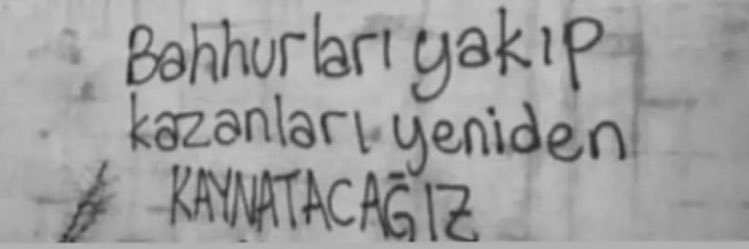 Bahhurları yakıp
kazanları yeniden
KAYNATACAĞIZ